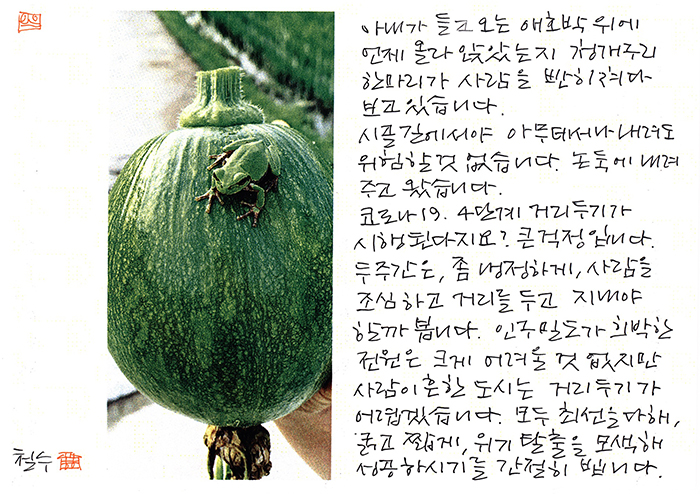 아내가 들고 오는 애호박 위에
언제 올라 앉았는지 청개구리
한마리가 사람을 빤히 쳐다
보고 있습니다.
시골길에서야 아무데서나 내려도
위험할 것 없습니다. 논둑에 내려
주고 왔습니다.
코로나19. 4단계 거리두기가
시행된다지요? 큰 걱정입니다.
두주간은, 좀 냉정하게, 사람을
조심하고 거리를 두고 지내야
할까 봅니다. 인구밀도가 희박한
전원은 크게 어려울 것 없지만
사람이 흔한 도시는 거리두기가
어렵겠습니다. 모두 최선을 다해,
굵고 짧게, 위기 탈출을 모색해
성공하시기를 간절히 빕니다.
철수